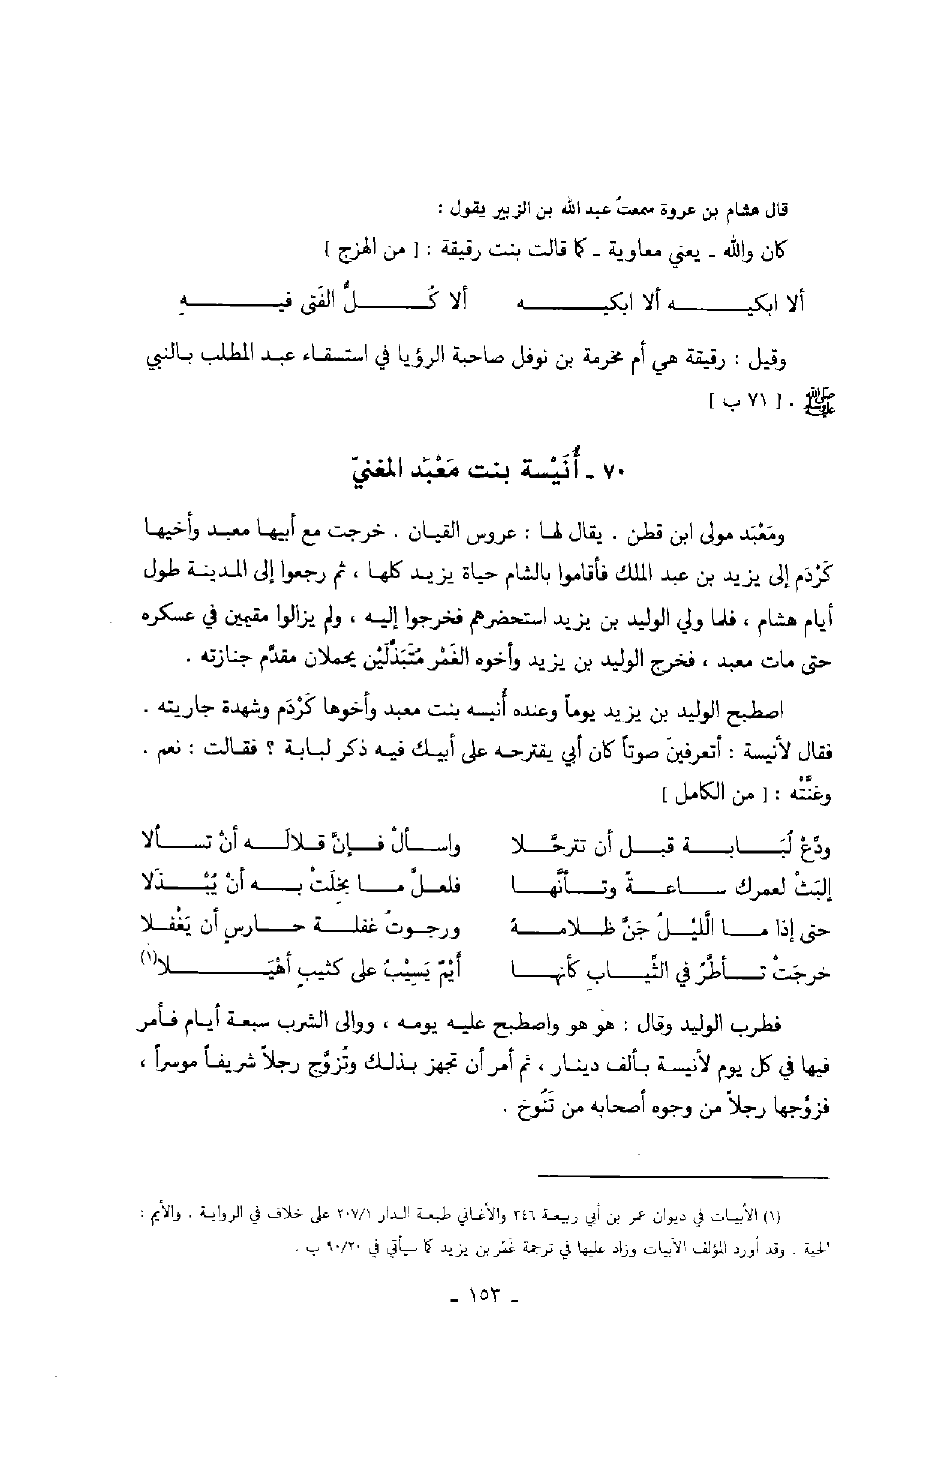 قال هشام بن عروة سمعتُ عبد الله بن الزبير يقول :
كان والله ـ يعني معاوية ـ كما قالت بنت رقيقة : [ من الهزج ]
ألا ابكيـــه ألا ابكيـــه ألا كُـــلُّ الفَتى فيـــهِ
وقيل : رقيقة هي أم مخرمة بن نوفل صاحبة الرؤيا في استسقاء عبد المطلب بالنبي
ﷺ . [ ٧١ ب ]
٧٠ ـ أُنَيْسة بنت مَعْبَد المغنيّ
ومَعْبَد مولى ابن قطن . يقال لها : عروس القيان . خرجت مع أبيها معبد وأخيها
كَرْدَم إلى يزيد بن عبد الملك فأقاموا بالشام حياة يزيد كلها ، ثم رجعوا إلى المدينة طول
أيام هشام ، فلما ولي الوليد بن يزيد استحضرهم فخرجوا إليه ، ولم يزالوا مقيمين في عسكره
حتى مات معبد ، فخرج الوليد بن يزيد وأخوه الغَمْر مُتَبَذِّلَيْن يحملان مقدَّم جنازته .
اصطبح الوليد بن يزيد يوماً وعنده أُنيسه بنت معبد وأخوها كَرْدَم وشهدة جاريته .
فقال لأنيسة : أتعرفينَ صوتاً كان أبي يقترحه على أبيك فيه ذكر لبابة ؟ فقالت : نعم .
وغنَّتْه : [ من الكامل ]
ودِّعْ لُبَـــابـــة قبـــل أن تترحَّـــلا واســـألْ فـــإنَّ قـــلالَـــه أنْ تـــســـألا
إلبَثْ لعمرك ســـاعـــةً وتـــأنَّهـــا فلعـــلَّ مـــا بخلَتْ بـــه أنْ يُبْـــذَلا
حتى إذا مـــا الَّليـــلُ جَنَّ ظـــلامـــهُ ورجـــوتُ غفلـــة حـــارسٍ أن يَغْفـــلا
خرجَتْ تـــأطَّرُ في الثِّيـــاب كأنهـــا أَيْمٌ يَسِيْبُ على كثيبٍ أهْيَـــلا(١)
فطرب الوليد وقال : هو هو واصطبح عليه يومه ، ووالى الشرب سبعة أيام فأمر
فيها في كل يوم لأنيسة بألف دينار ، ثم أمر أن تجهز بذلك وتُزوَّج رجلاً شريفاً موسراً ،
فزوَّجها رجلاً من وجوه أصحابه من تَنُوخ .
(١) الأبيات في ديوان عمر بن أبي ربيعة ٢٤٦ والأغاني طبعة الدار ٢٠٧/١ على خلاف في الرواية . والأيم :
الحية . وقد أورد المؤلف الأبيات وزاد عليها في ترجمة غَمْر بن يزيد كما سيأتي في ٩٠/٢٠ ب .
ـ ١٥٣ ـ